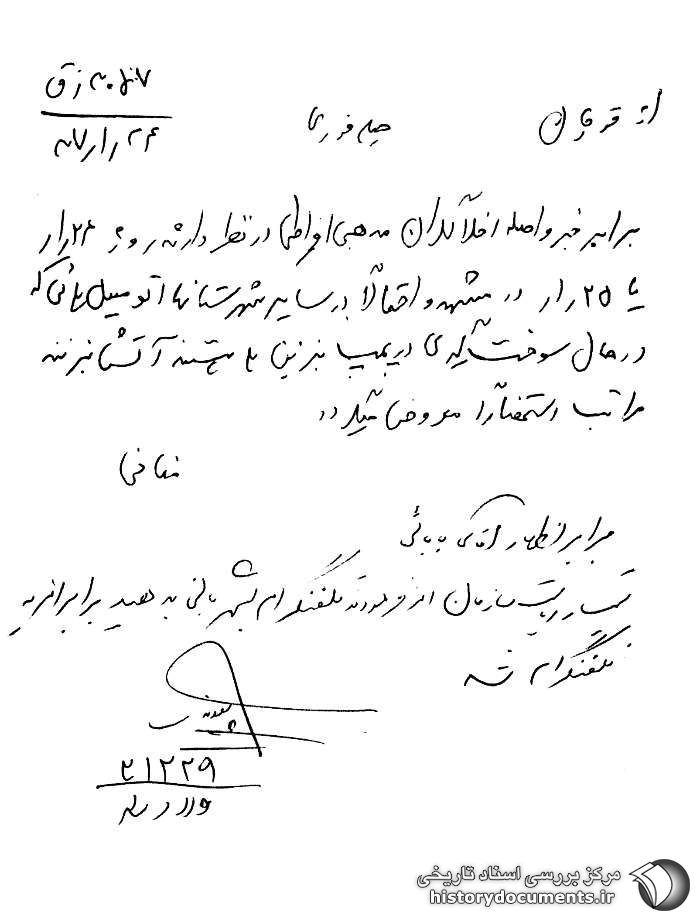 از قوچان
خیلی فوری
برابر خبر واصله اخلالگران مذهبی افراطی در نظر دارند روز ۲۴ر۱ر
یا ۲۵ر۱ر در مشهد و احتمالاً در سایر شهرستانها اتومبیل هائی که
در حال سوخت گیری در پمپ بنزین ها هستند آتش بزنند
مراتب استحضاراً معروض میگردد
برابر اظهار آقای بابائی
تیمسار ریاست سازمان امر فرمودند تلفنگرام بشهربانی بدهید برابر امریه
تلفنگرام شد
۲۱۲۲۹
مرکز بررسی اسناد تاریخی
historydocuments.ir